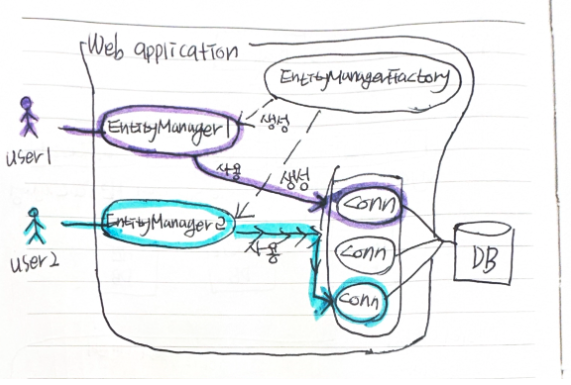 Web application
EntityManagerFactory
EntityManager1
생성
user1
사용
생성
conn
EntityManager2
user2
사용
conn
conn
DB